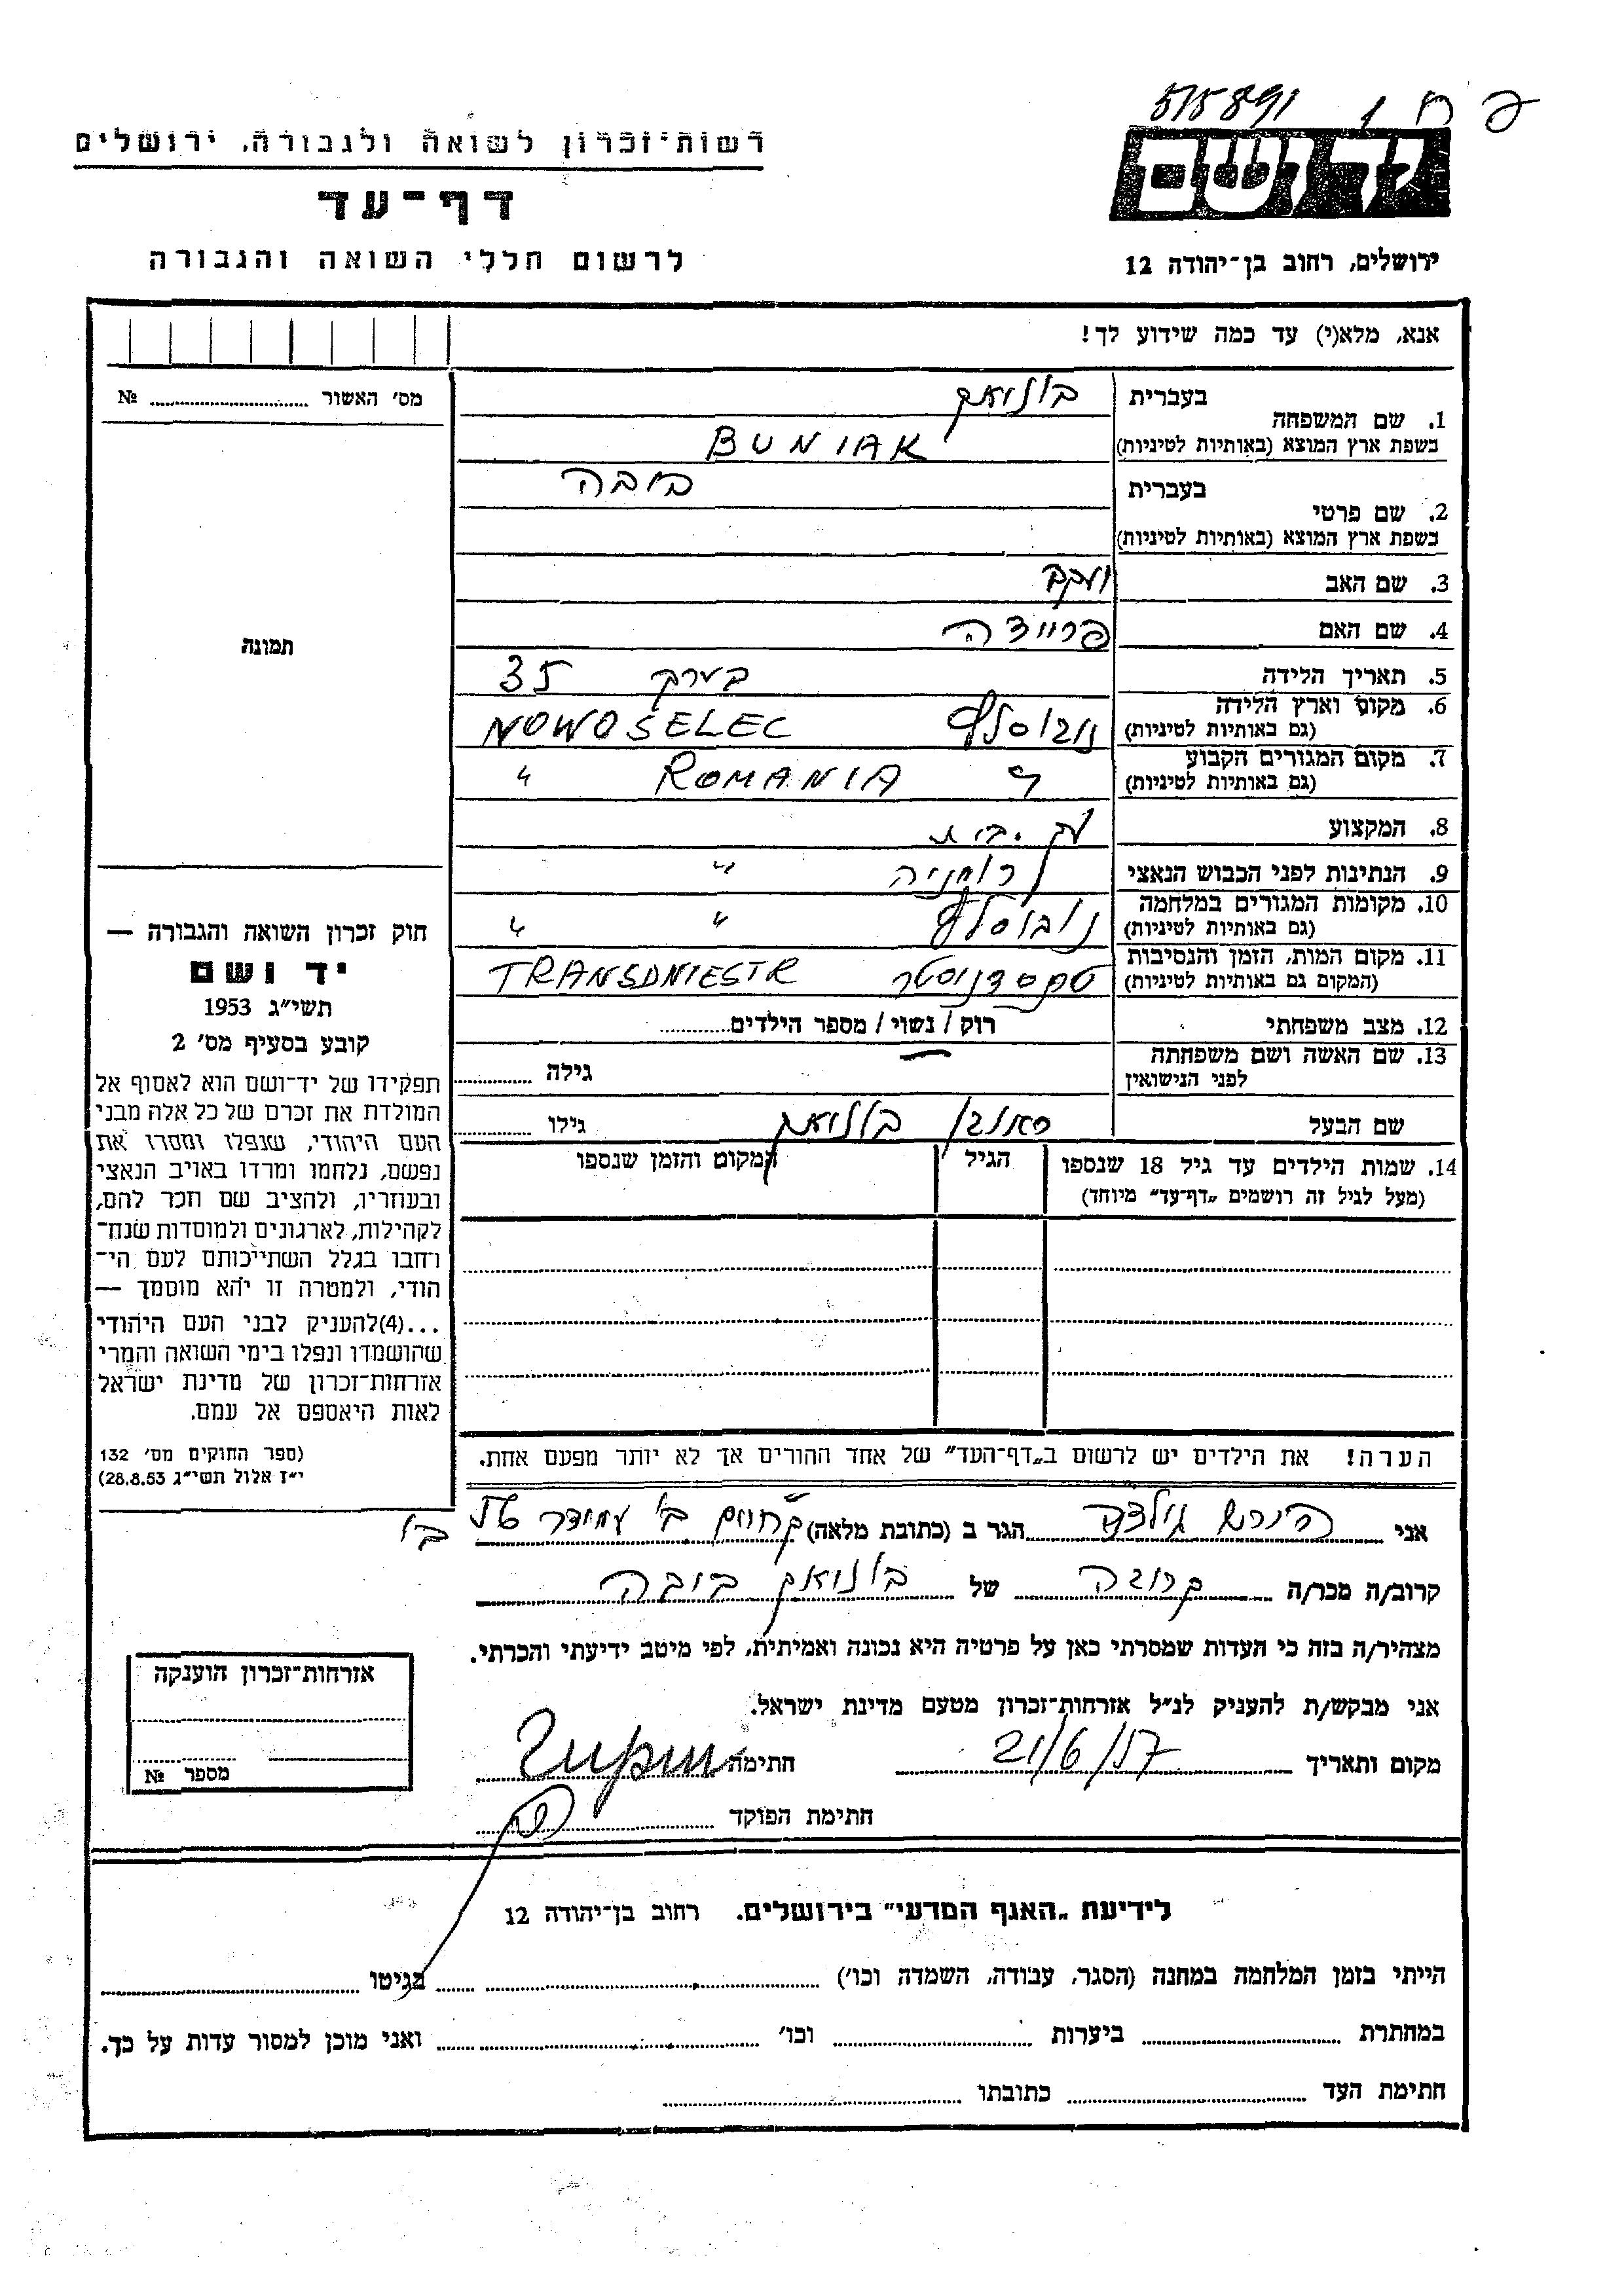 515891
יד ושם
ירושלים, רחוב בן־יהודה 12
רשות־זכרון לשואה ולגבורה, ירושלים
דף־עד
לרשום חללי השואה והגבורה
אנא, מלא(י) עד כמה שידוע לך!
מס׳ האשור № 
תמונה
1. שם המשפחה
בעברית בוניאק
בשפת ארץ המוצא (באותיות לטיניות) BUNIAK
2. שם פרטי
בעברית בובה
בשפת ארץ המוצא (באותיות לטיניות)
3. שם האב יעקב
4. שם האם פריידה
5. תאריך הלידה בערך 35
6. מקום וארץ הלידה
(גם באותיות לטיניות) נובוסלץ NOWOSELEC
7. מקום המגורים הקבוע
(גם באותיות לטיניות) " ROMANIA "
8. המקצוע עק. בית
9. הנתינות לפני הכבוש הנאצי רומניה "
10. מקומות המגורים במלחמה
(גם באותיות לטיניות) נובוסלץ " "
11. מקום המות, הזמן והנסיבות
(המקום גם באותיות לטיניות) TRANSDNIESTR
12. מצב משפחתי רוק / נשוי / מספר הילדים
13. שם האשה ושם משפחתה
לפני הנישואין גילה
שם הבעל בוניאק גילו
14. שמות הילדים עד גיל 18 שנספו
(מעל לגיל זה רושמים „דף־עד״ מיוחד)
הגיל
המקום והזמן שנספו
הערה! את הילדים יש לרשום ב„דף־העד״ של אחד ההורים אך לא יותר מפעם אחת.
חוק זכרון השואה והגבורה —
יד ושם
תשי״ג 1953
קובע בסעיף מס׳ 2
תפקידו של יד־ושם הוא לאסוף אל
המולדת את זכרם של כל אלה מבני
העם היהודי, שנפלו ומסרו את
נפשם, נלחמו ומרדו באויב הנאצי
ובעוזריו, ולהציב שם וזכר להם,
לקהילות, לארגונים ולמוסדות שנח־
רחבו בגלל השתייכותם לעם הי־
הודי, ולמטרה זו יהא מוסמך —
...(4)להעניק לבני העם היהודי
שהושמדו ונפלו בימי השואה והמרי
אזרחות־זכרון של מדינת ישראל
לאות היאספם אל עמם.
(ספר החוקים מס׳ 132
י״ז אלול תשי״ג 28.8.53)
אני הירש גולדה הגר ב (כתובת מלאה)
קרוב/ה מכר/ה קרובה של בוניאק בובה
מצהיר/ה בזה כי העדות שמסרתי כאן על פרטיה היא נכונה ואמיתית, לפי מיטב ידיעתי והכרתי.
אני מבקש/ת להעניק לנ״ל אזרחות־זכרון מטעם מדינת ישראל.
מקום ותאריך 21/6/57 חתימה
חתימת הפוקד
אזרחות־זכרון הוענקה
מספר №
לידיעת „האגף המדעי״ בירושלים. רחוב בן־יהודה 12
הייתי בזמן המלחמה במחנה (הסגר, עבודה, השמדה וכו׳) בגיטו
במחתרת ביערות וכו׳ ואני מוכן למסור עדות על כך.
חתימת העד כתובתו